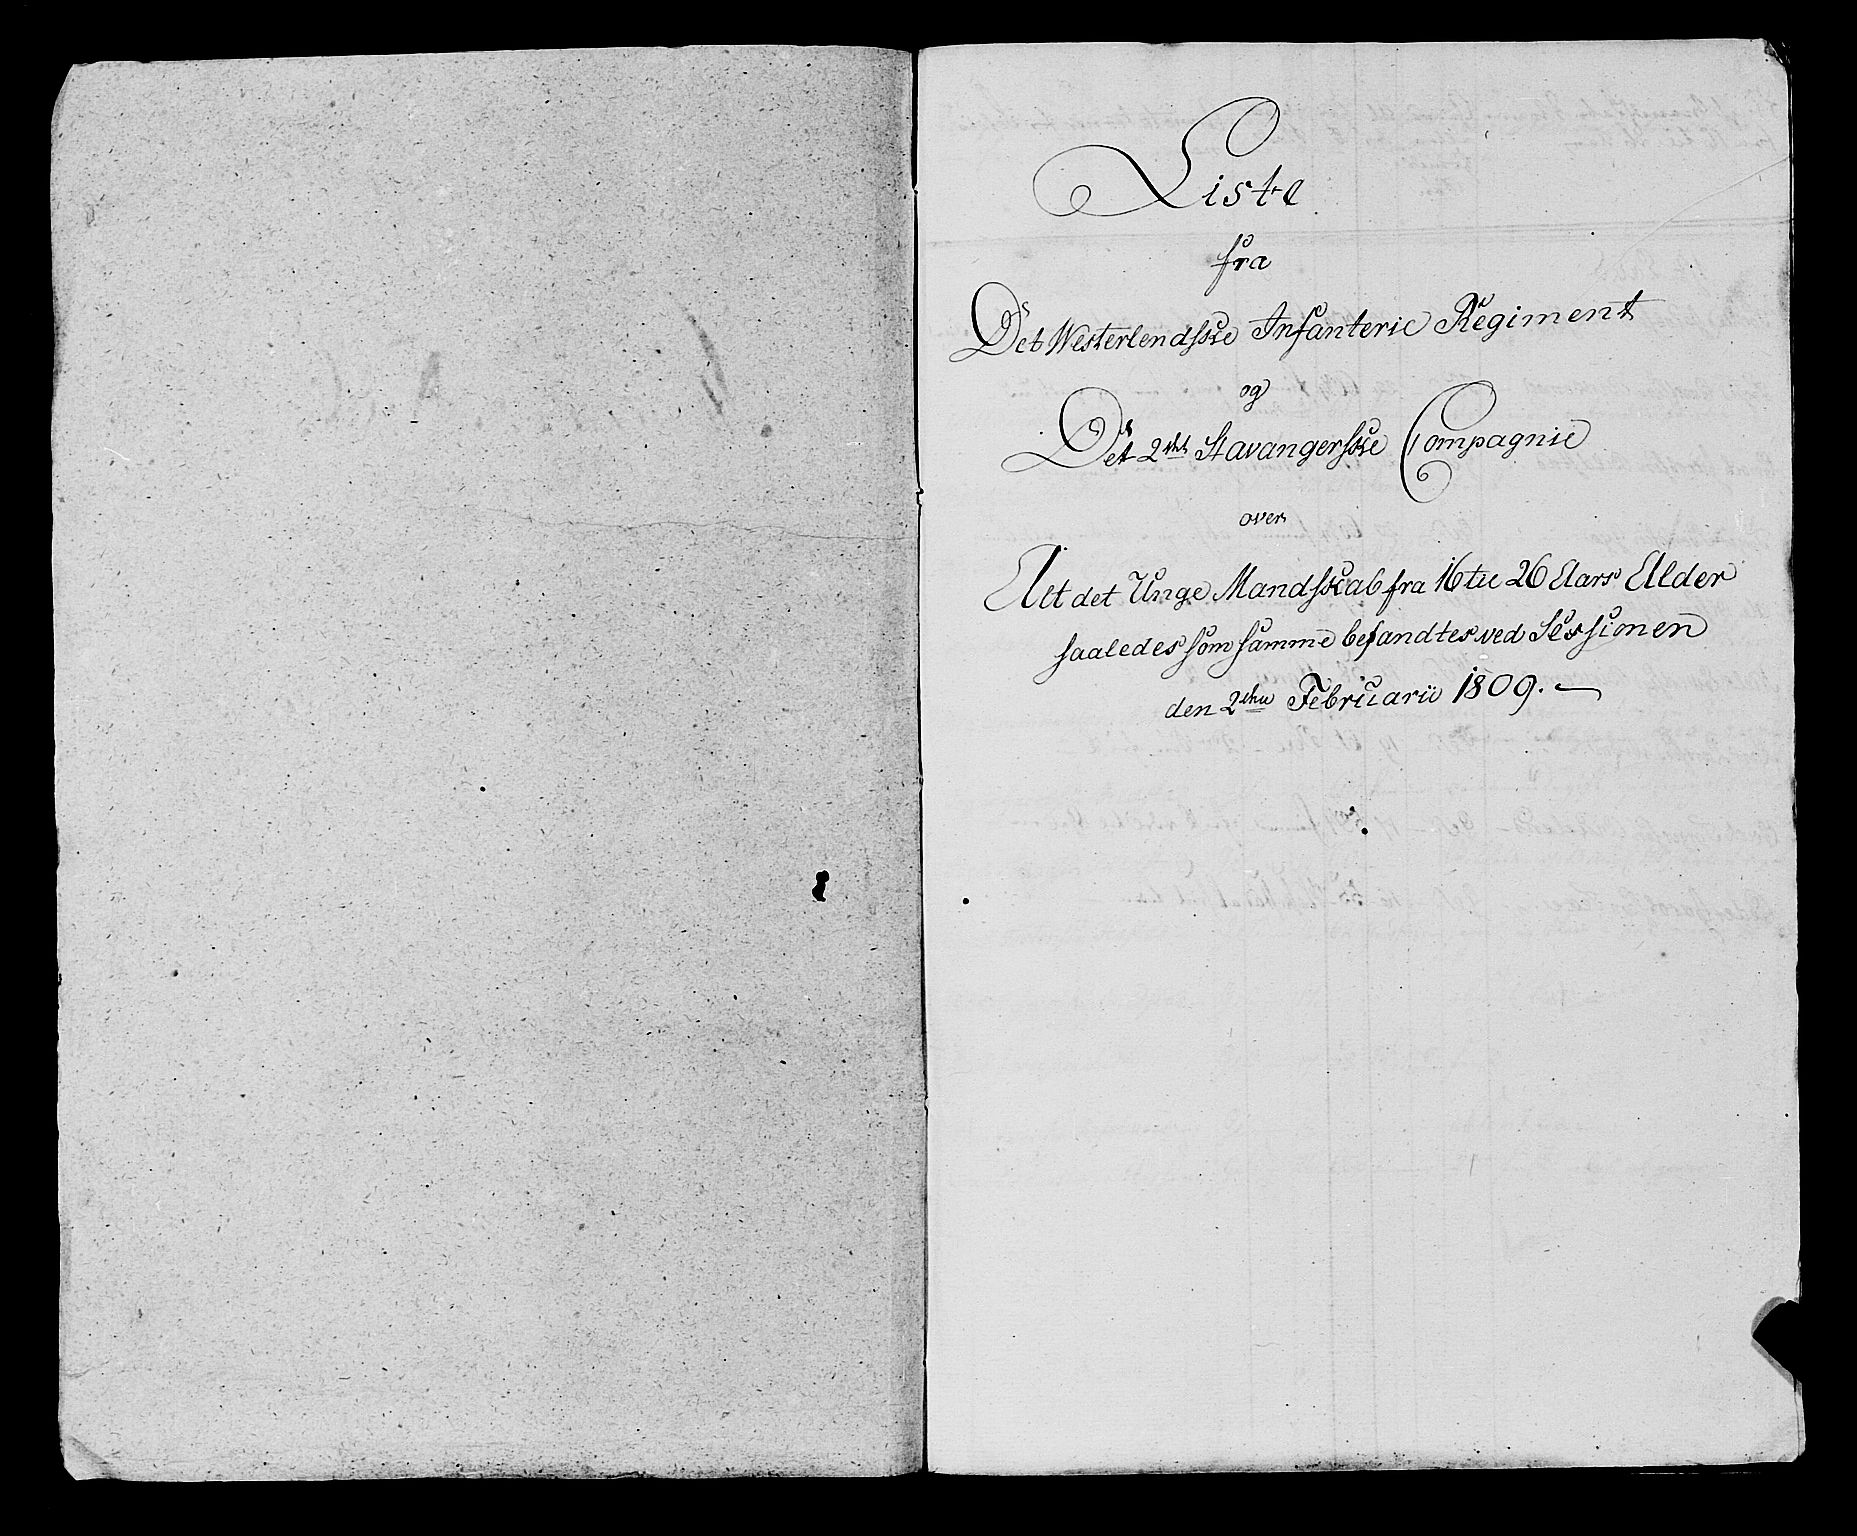 Liste
fra
Det Westerlendsske Infanterie Regiment
og
Det 2det Stavangerske Compagnie
over
Alt det Unge Mandskab fra 16 til 26 Aars Alder
saaledes som samme befandtes ved Sessionen
den 2den Februarii 1809. —